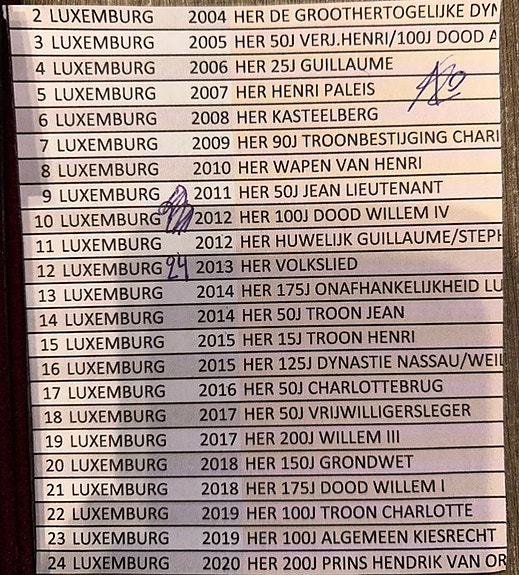 2 LUXEMBURG 2004 HER DE GROOTHERTOGELIJKE DYN
3 LUXEMBURG 2005 HER 50J VERJ.HENRI/100J DOOD A
4 LUXEMBURG 2006 HER 25J GUILLAUME
5 LUXEMBURG 2007 HER HENRI PALEIS
6 LUXEMBURG 2008 HER KASTEELBERG
7 LUXEMBURG 2009 HER 90J TROONBESTIJGING CHARI
8 LUXEMBURG 2010 HER WAPEN VAN HENRI
9 LUXEMBURG 2011 HER 50J JEAN LIEUTENANT
10 LUXEMBURG 2012 HER 100J DOOD WILLEM IV
11 LUXEMBURG 2012 HER HUWELIJK GUILLAUME/STEPH
12 LUXEMBURG 24 2013 HER VOLKSLIED
13 LUXEMBURG 2014 HER 175J ONAFHANKELIJKHEID LU
14 LUXEMBURG 2014 HER 50J TROON JEAN
15 LUXEMBURG 2015 HER 15J TROON HENRI
16 LUXEMBURG 2015 HER 125J DYNASTIE NASSAU/WEIL
17 LUXEMBURG 2016 HER 50J CHARLOTTEBRUG
18 LUXEMBURG 2017 HER 50J VRIJWILLIGERSLEGER
19 LUXEMBURG 2017 HER 200J WILLEM III
20 LUXEMBURG 2018 HER 150J GRONDWET
21 LUXEMBURG 2018 HER 175J DOOD WILLEM I
22 LUXEMBURG 2019 HER 100J TROON CHARLOTTE
23 LUXEMBURG 2019 HER 100J ALGEMEEN KIESRECHT
24 LUXEMBURG 2020 HER 200J PRINS HENDRIK VAN OR